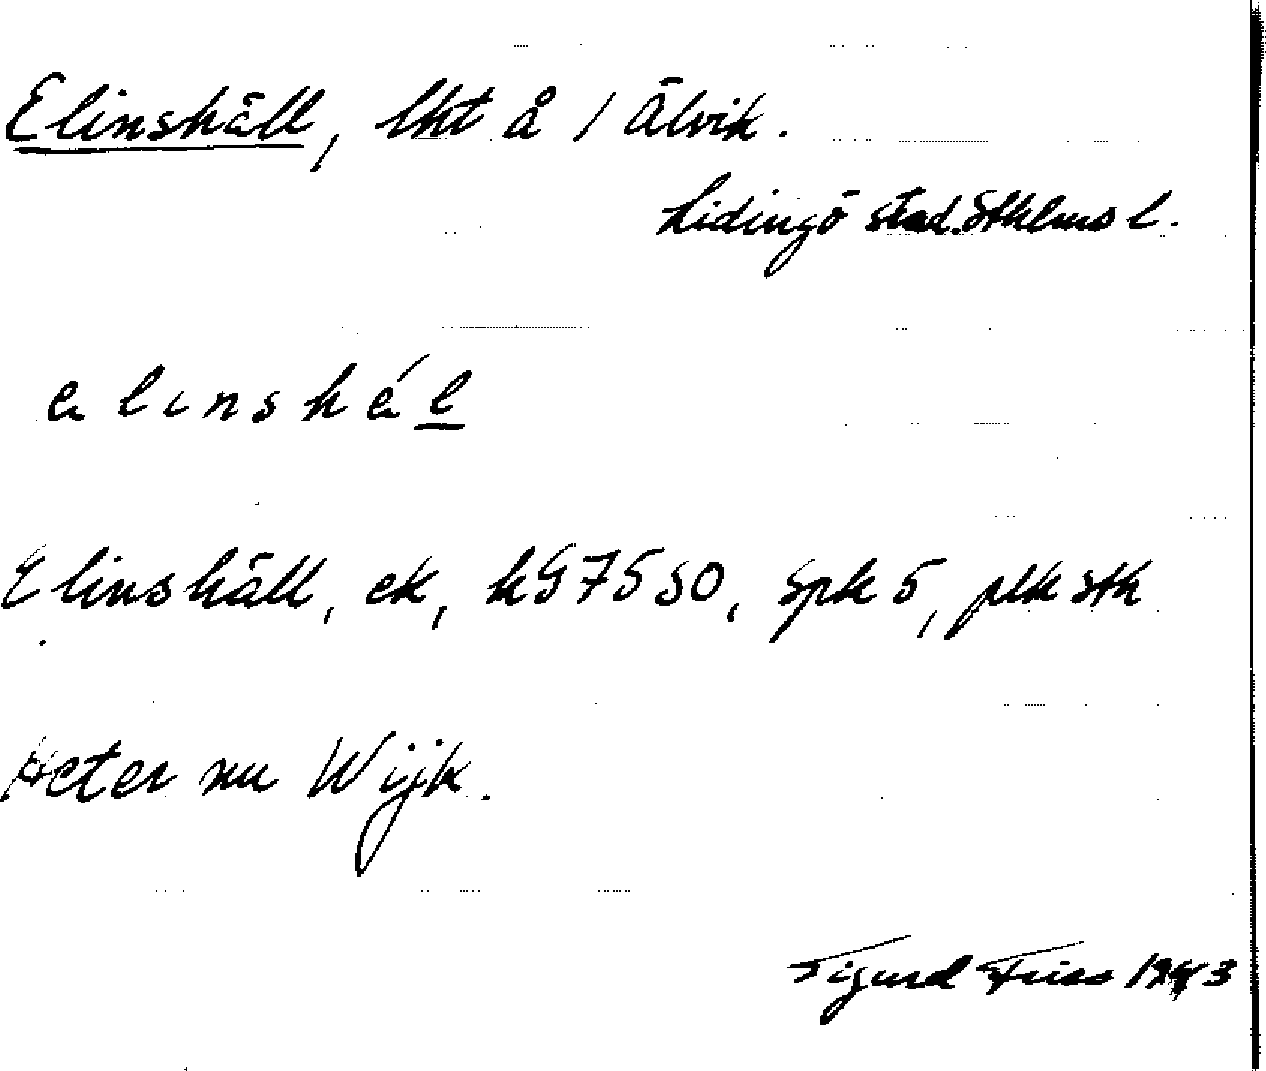 Elinshäll, lht å 1 Älvik.
Lidingö stad. Sthlms l.
elinshél
Elinshäll, ek, h G7550, Spk 5, plk Sth
Heter nu Wijk.
Sigurd Fries 1943